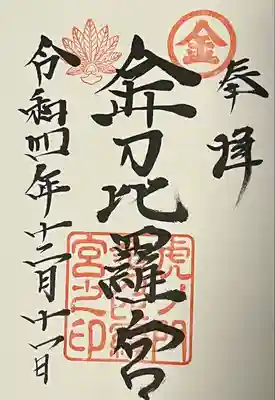 奉拝
金
金刀比羅宮
虎ノ門
宮之印
令和四年十二月十一日